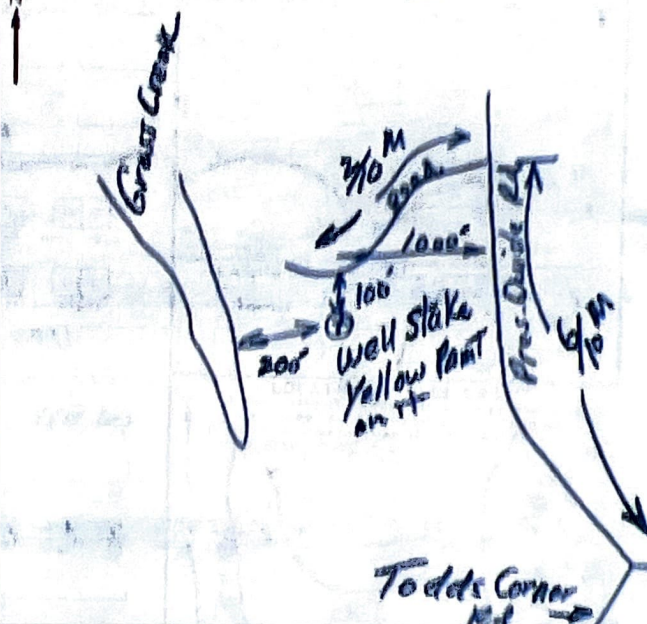 N
Grass Creek
2/10 M
Road
1000'
100'
200'
Well Stake
Yellow Paint
on it
6/10 M
Todds Corner
Rd